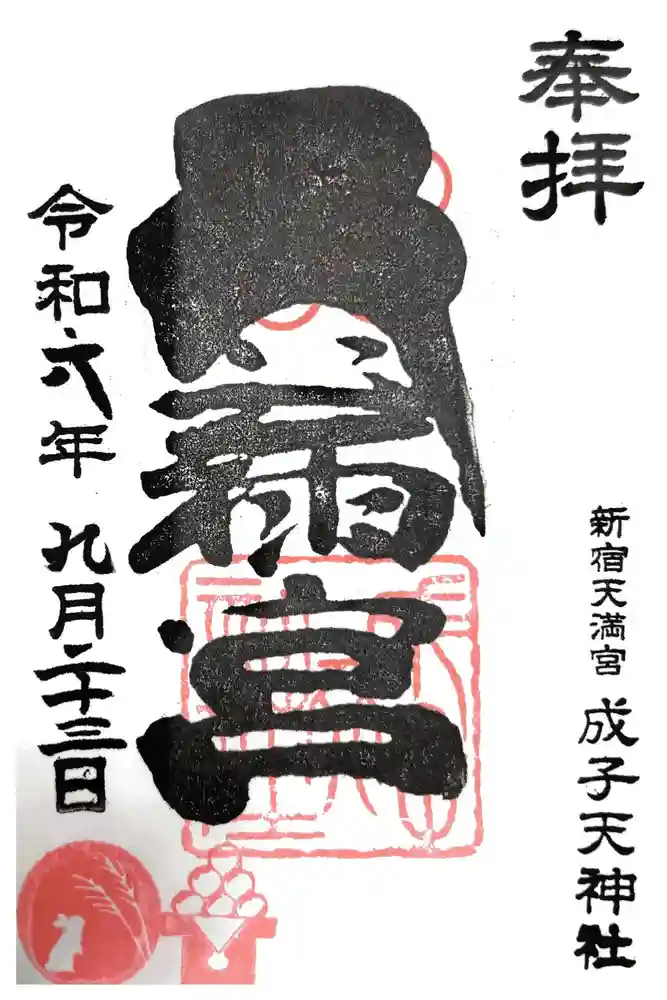 奉拝
新宿天満宮 成子天神社
天満宮
令和六年 九月二十三日